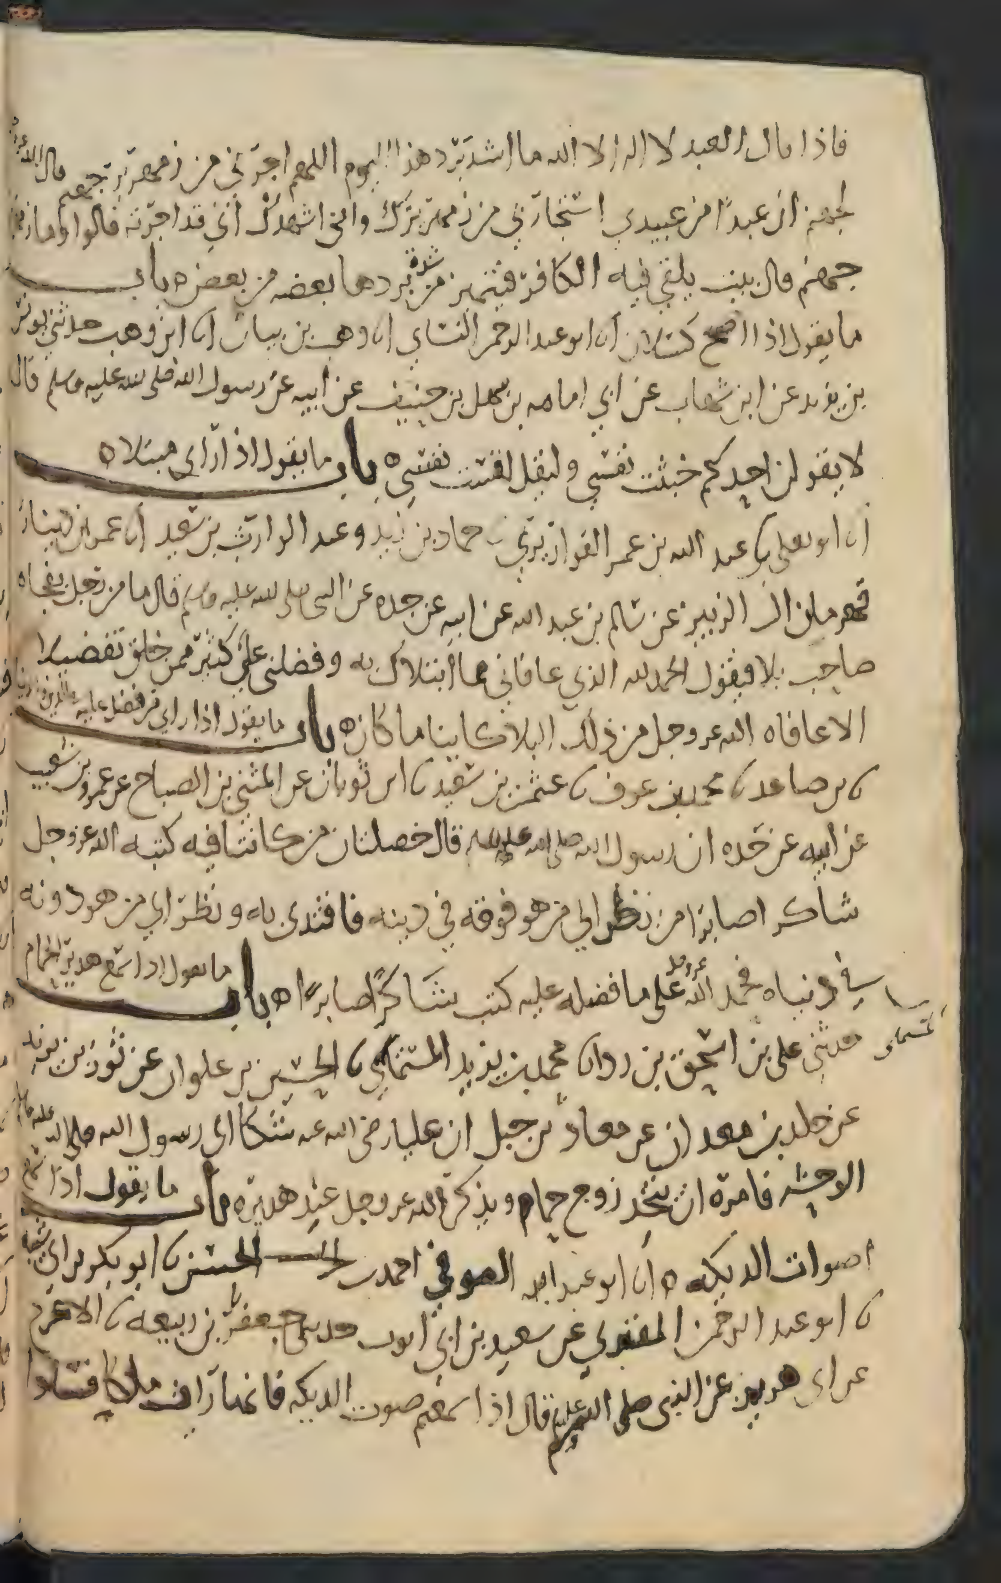 فاذا قال العبد لا اله الا الله ما اشد برد هذا اليوم اللهم اجرني من زمهرير جهنم قال الله عز وجل
لجهنم ان عبدا من عبيدي استجارني من زمهريرك واني اشهدك اني قد اجرته قالوا وما زمهرير
جهنم قال بيت يلقي فيه الكافر فيتميز من شدة بردها بعضه من بعض ه باب
ما يقول اذا اصبح كسلان انا ابو عبد الرحمن النساي انا وهب بن بيان انا ابن وهب حدثني يونس
بن يزيد عن ابن شهاب عن ابي امامه بن سهل بن حنيف عن ابيه عن رسول الله صلى الله عليه وسلم قال
لا يقولن احدكم خبثت نفسي وليقل لقست نفسي ه باب ما يقول اذا راى مبتلا ه
انا ابو يعلى نا عبد الله بن عمر القواريري نا حماد بن زيد وعبد الوارث بن سعيد انا عمرو بن دينار
قهرمان ال الزبير عن سالم بن عبد الله عن ابيه عن جده عن النبي صلى الله عليه وسلم قال ما من رجل يفجاه
صاحب بلا فيقول الحمد لله الذي عافاني مما ابتلاك به وفضلني على كثير ممن خلق تفضيلا
الا عافاه الله عز وجل من ذلك البلا كاينا ما كان ه باب ما يقول اذا راى من فضل عليه في الدين والدنيا
نا بن صاعد نا محمد بن عوف نا عثمن بن سعيد نا ابن ثوبان عن المثنى بن الصباح عن عمرو بن شعيب
عن ابيه عن جده ان رسول الله صلى الله عليه وسلم قال خصلتان من كانتا فيه كتبه الله عز وجل
شاكرا صابرا من نظر الي من هو فوقه في دينه فاقتدى به ونظر الي من هو دونه
في دنياه فحمد الله عز وجل على ما فضله عليه كتب شاكرا صابرا ه باب ما يقول اذا سمع هدير الحمام
حدثني علي بن اسحق بن رداء نا محمد بن يزيد المستملي نا الحسين بن علوان عن ثور بن يزيد
عن خلد بن معدان عن معاذ بن جبل ان عليا رضي الله عنه شكا الي رسول الله صلى الله عليه وسلم
الوحشه فامره ان يتخذ زوج حمام ويذكر الله عز وجل عند هديره باب ما يقول اذا سمع
اصوات الديكه ه انا ابو عبد الله الصوفي احمد بن الحسن نا ابو بكر بن ابي شيبه
نا ابو عبد الرحمن المقري عن سعيد بن ابي ايوب حدثني جعفر بن ربيعه نا الاعرج
عن ابي هريره عن النبي صلى الله عليه وسلم قال اذا سمعتم صوت الديكه فانها رات ملكا فسلوا